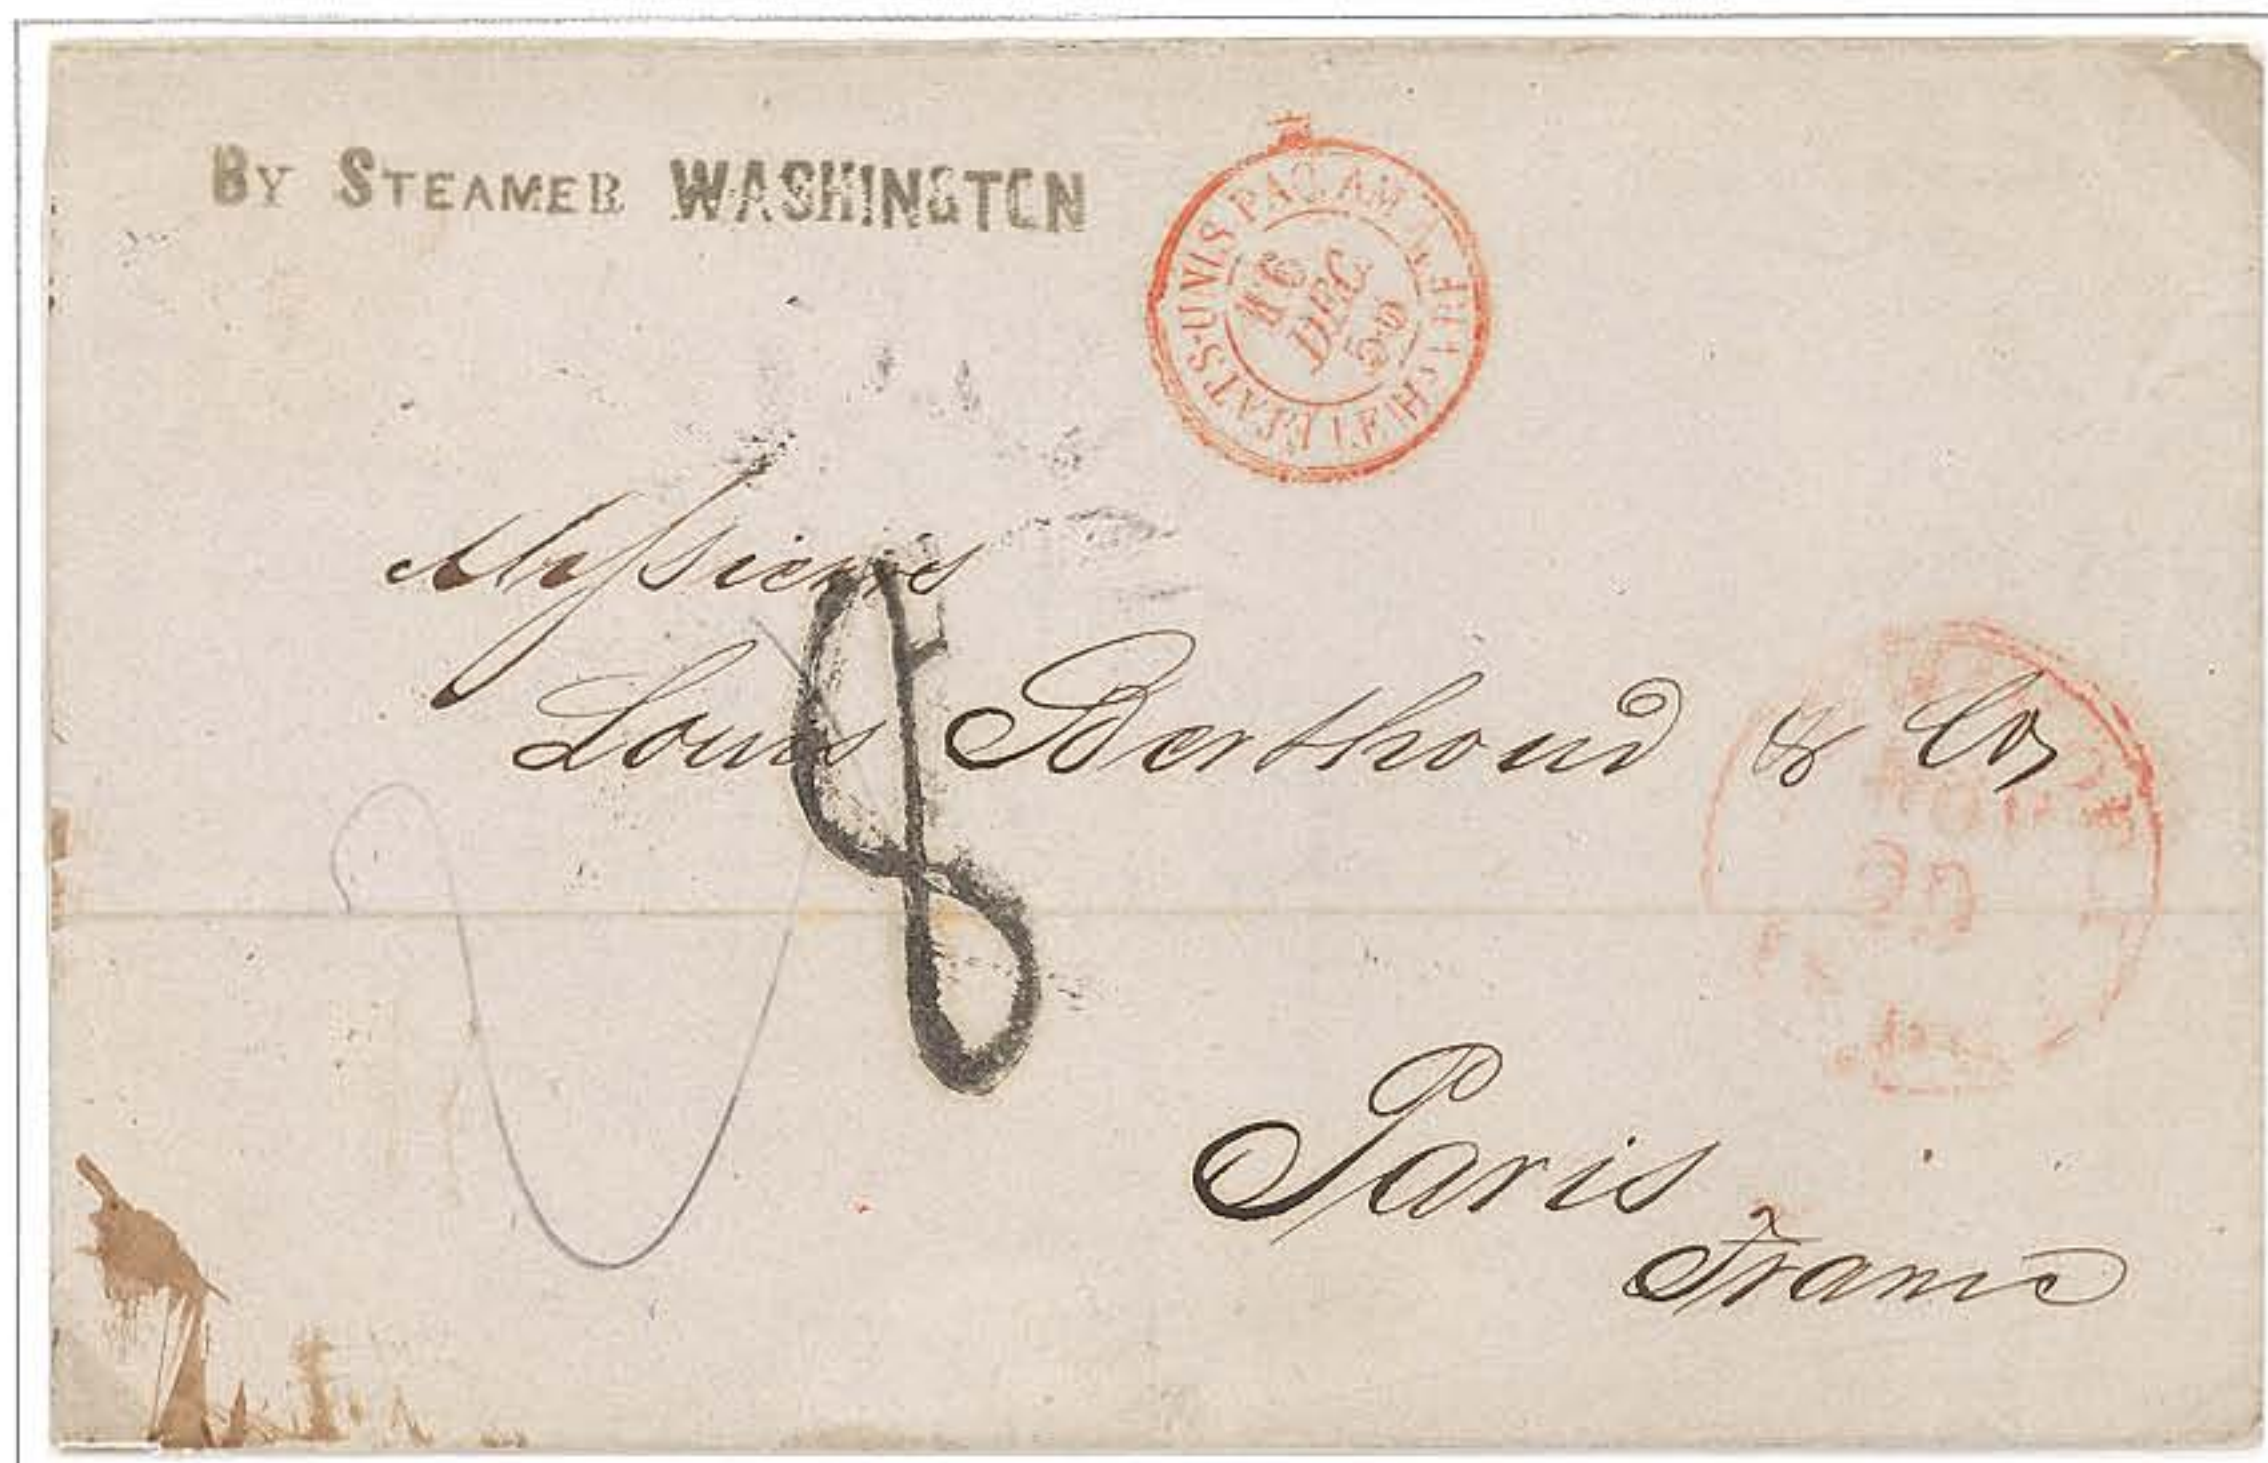 By Steamer WASHINGTON
ETATS-UNIS PAQ. AM.
16
DEC.
59
Messieurs
Louis Berthoud & Co
8
Paris
France